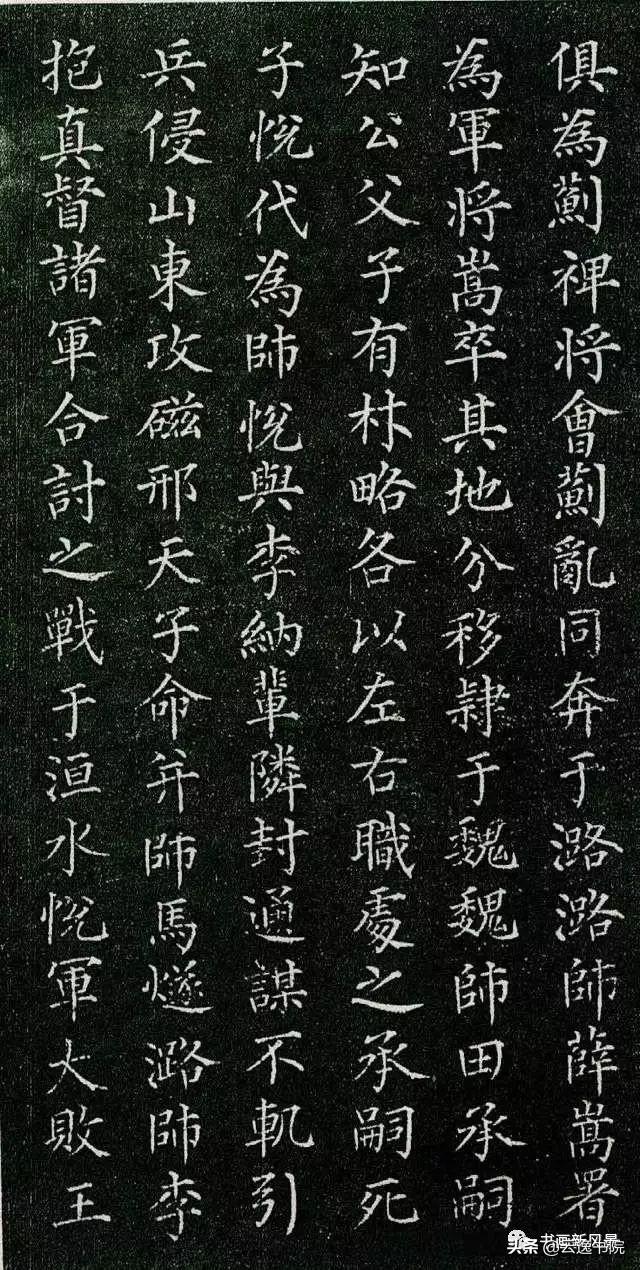 俱為薊裨將會薊亂同奔于潞潞師薛嵩署
為軍將嵩卒其地分移隸于魏魏師田承嗣
知公父子有材略各以左右職處之承嗣死
子悅代為師悅與李納輩隣封通謀不軌引
兵侵山東攻磁邢天子命并師馬燧潞師李
抱真督諸軍合討之戰于洹水悅軍大敗王
书画新风景
头条 @云逸书院